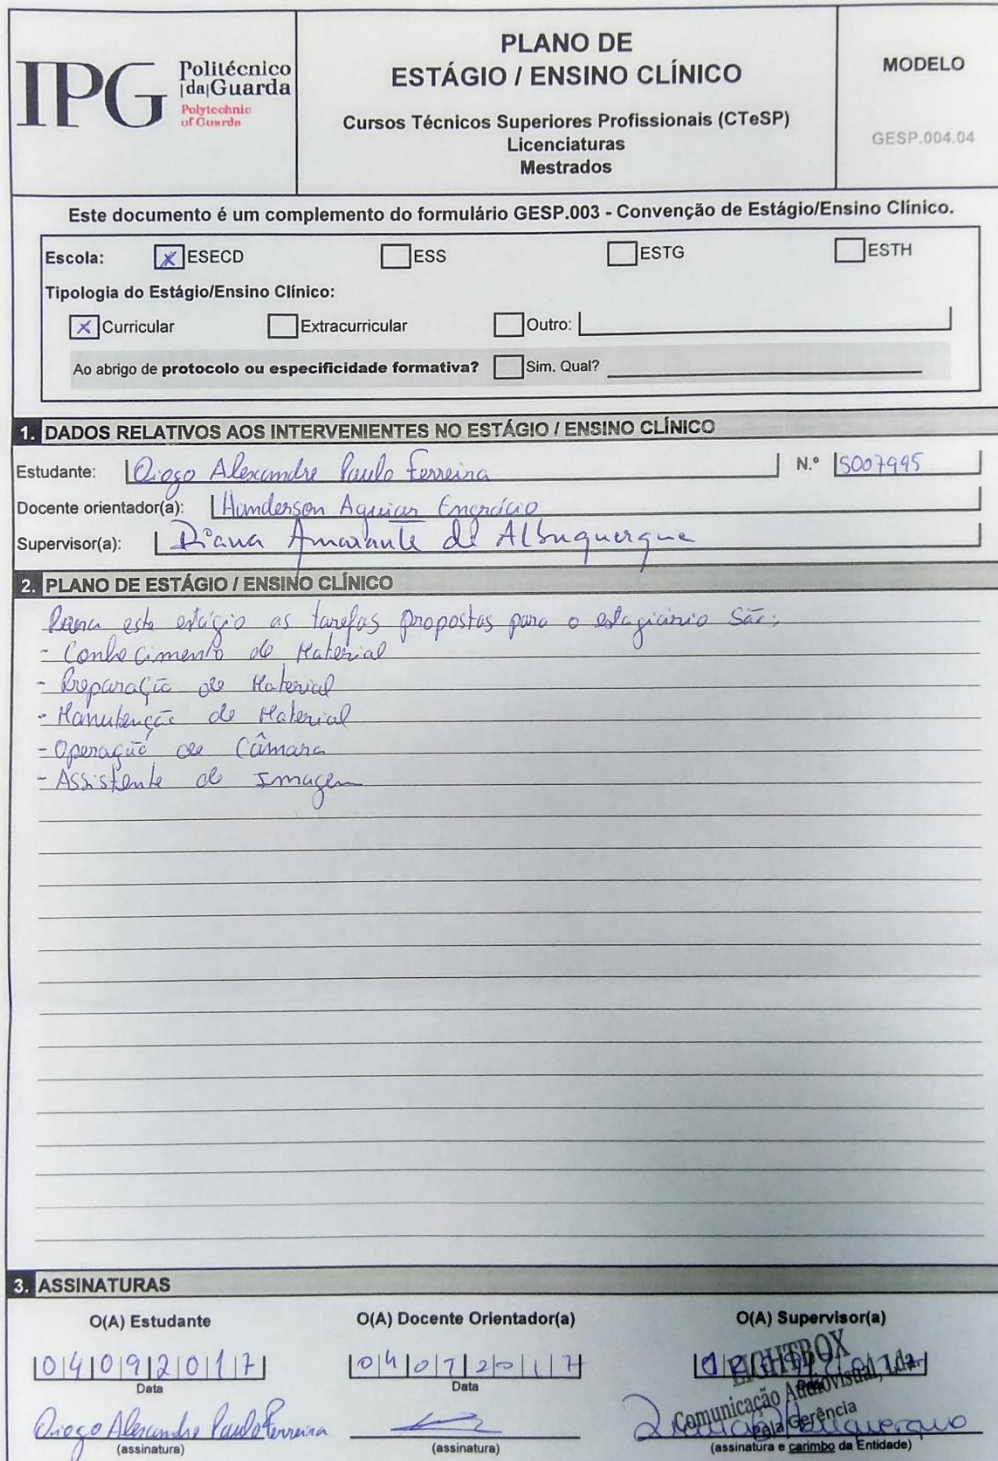 IPG Politécnico
|da|Guarda
Polytechnic
of Guarda
PLANO DE
ESTÁGIO / ENSINO CLÍNICO
Cursos Técnicos Superiores Profissionais (CTeSP)
Licenciaturas
Mestrados
MODELO
GESP.004.04
Este documento é um complemento do formulário GESP.003 - Convenção de Estágio/Ensino Clínico.
Escola: X ESECD ESS ESTG ESTH
Tipologia do Estágio/Ensino Clínico:
X Curricular Extracurricular Outro:
Ao abrigo de protocolo ou especificidade formativa? Sim. Qual?
1. DADOS RELATIVOS AOS INTERVENIENTES NO ESTÁGIO / ENSINO CLÍNICO
Estudante: Diogo Alexandre Paulo Ferreira N.º 5007995
Docente orientador(a): Handerson Aguiar Engrácio
Supervisor(a): Diana Amarante de Albuquerque
2. PLANO DE ESTÁGIO / ENSINO CLÍNICO
Para este estágio as tarefas propostas para o estagiário são:
- Conhecimento de Material
- Preparação de Material
- Manutenção de Material
- Operação de Câmara
- Assistente de Imagem
3. ASSINATURAS
O(A) Estudante
04092017
Data
Diogo Alexandre Paulo Ferreira
(assinatura)
O(A) Docente Orientador(a)
04072017
Data
(assinatura)
O(A) Supervisor(a)
LIGHTBOX
Comunicação Audiovisual, Lda.
Pela Gerência
(assinatura e carimbo da Entidade)